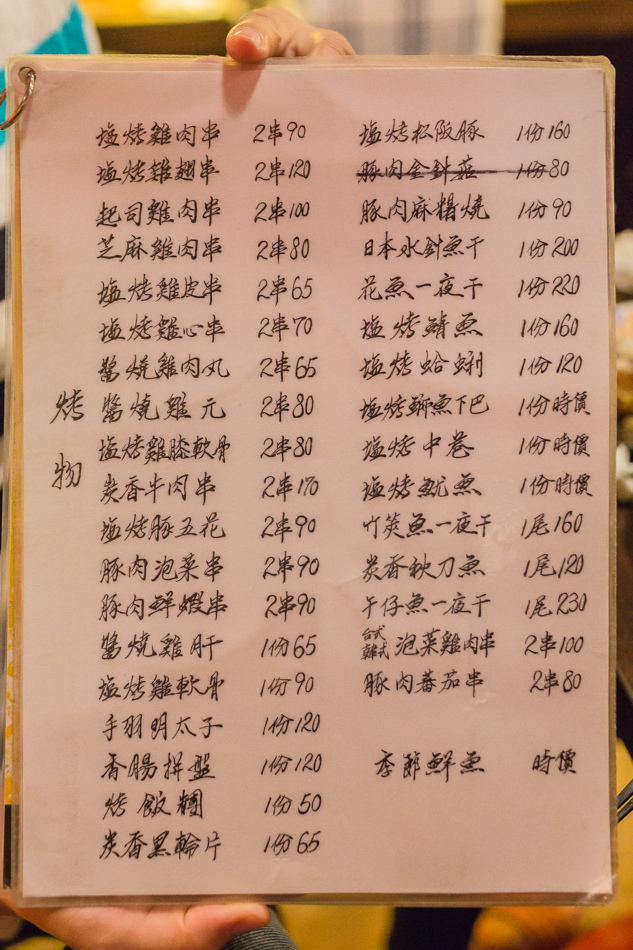 烤物
塩烤雞肉串 2串90
塩烤雞翅串 2串120
起司雞肉串 2串100
芝麻雞肉串 2串80
塩烤雞皮串 2串65
塩烤雞心串 2串70
醬燒雞肉丸 2串65
醬燒雞元 2串80
塩烤雞膝軟骨 2串80
炭香牛肉串 2串170
塩烤豚五花 2串90
豚肉泡菜串 2串90
豚肉鮮蝦串 2串90
醬燒雞肝 1份65
塩烤雞軟骨 1份90
手羽明太子 1份120
香腸拼盤 1份120
烤飯糰 1份50
炭香黑輪片 1份65
塩烤松阪豚 1份160
豚肉金針菇 1份80
豚肉麻糬燒 1份90
日本水針魚干 1份200
花魚一夜干 1份220
塩烤鯖魚 1份160
塩烤蛤蜊 1份120
塩烤鰤魚下巴 1份時價
塩烤中卷 1份時價
塩烤魷魚 1份時價
竹筴魚一夜干 1尾160
炭香秋刀魚 1尾120
午仔魚一夜干 1尾230
台式韓式泡菜雞肉串 2串100
豚肉蕃茄串 2串80
季節鮮魚 時價